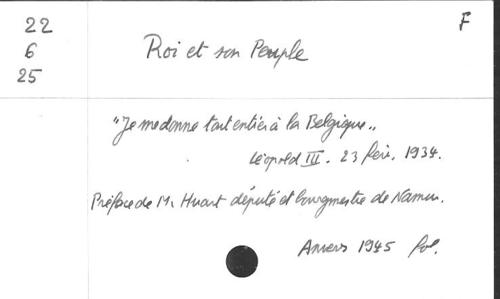 22
F
6
Roi et son Peuple
25
"Je me donne tout entier à la Belgique"
Léopold III. 23 févr. 1934.
Préface de M. Huart député et bourgmestre de Namur.
Anvers 1945 fol.